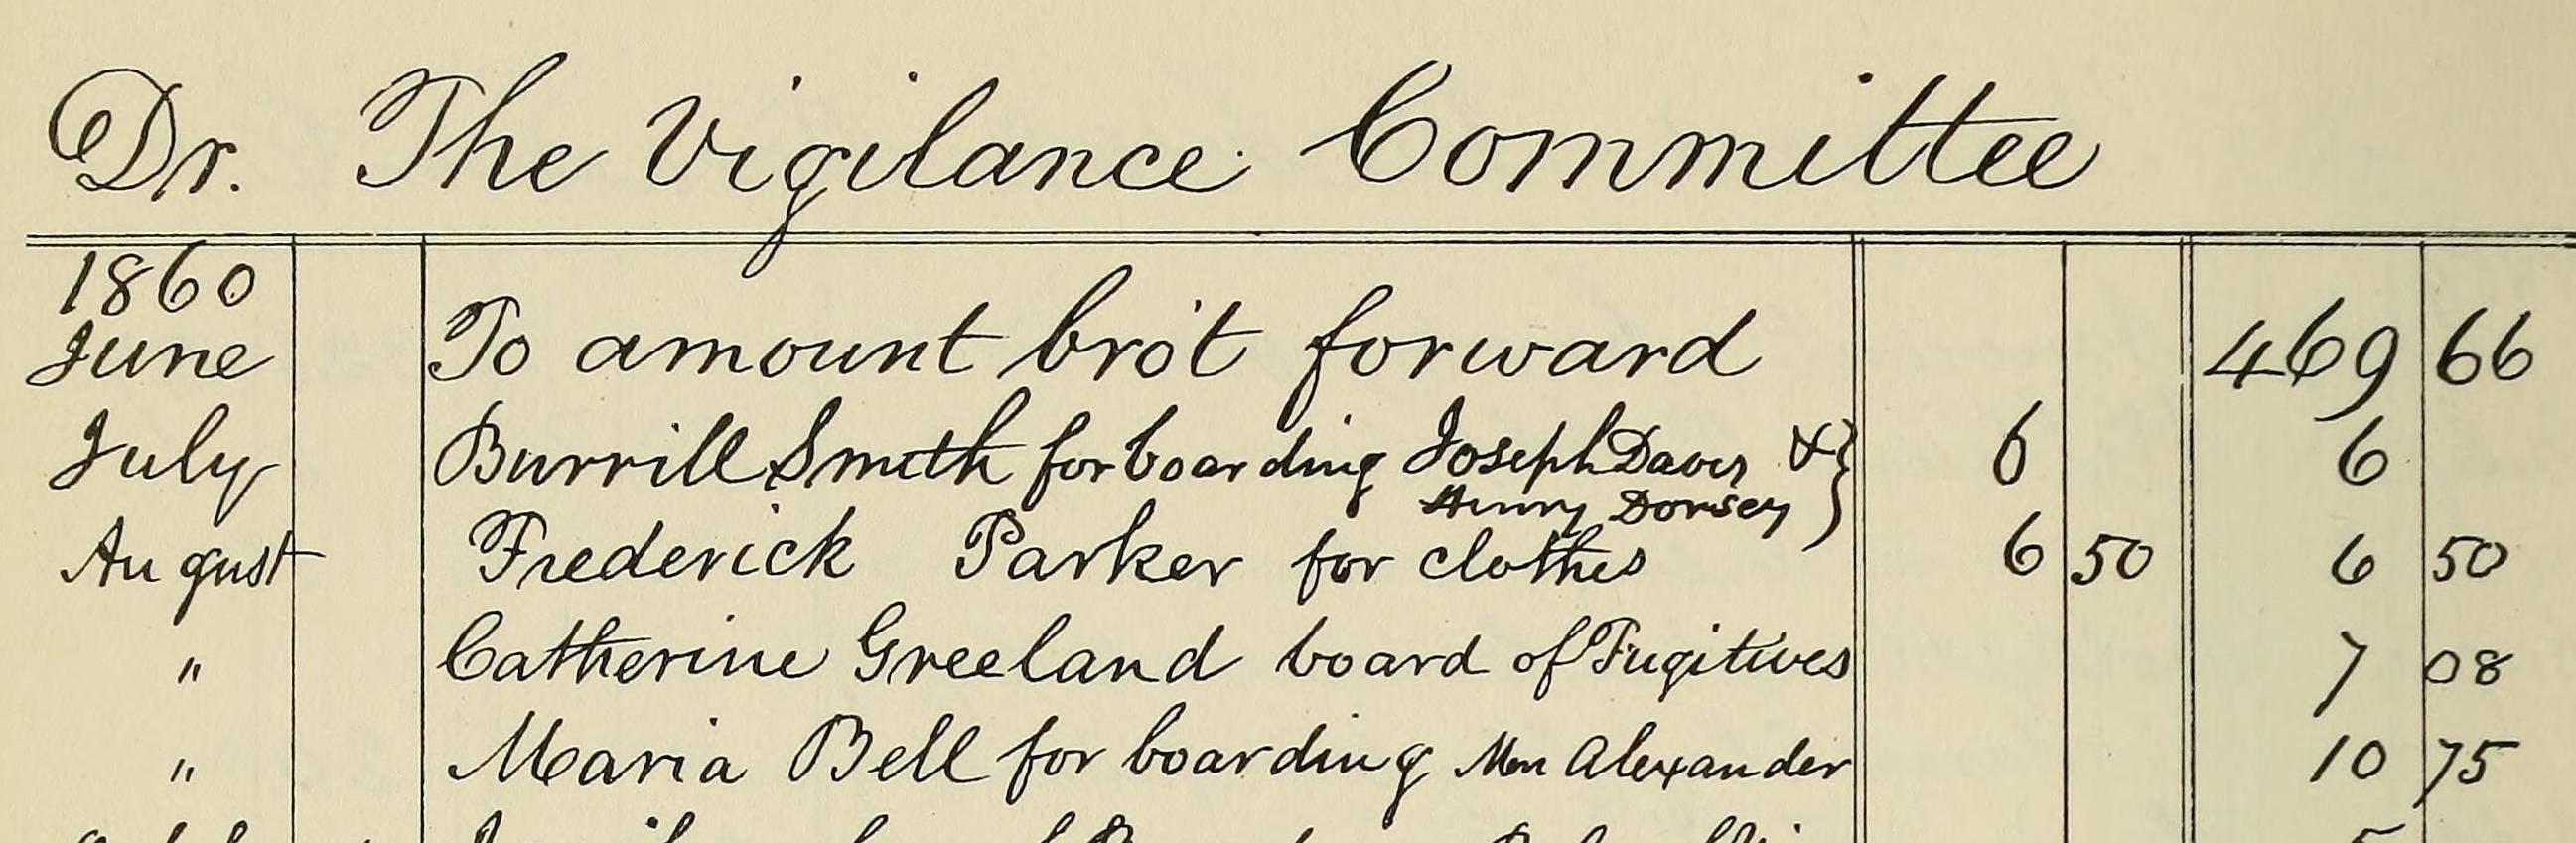 Dr. The Vigilance Committee
1860
June To amount bro't forward 469 66
July Burrill Smith for boarding Joseph Daves & } 6 6
Henry Dorsey
August Frederick Parker for clothes 6 50 6 50
" Catherine Greeland board of Fugitives 7 08
" Maria Bell for boarding Alexander 10 75